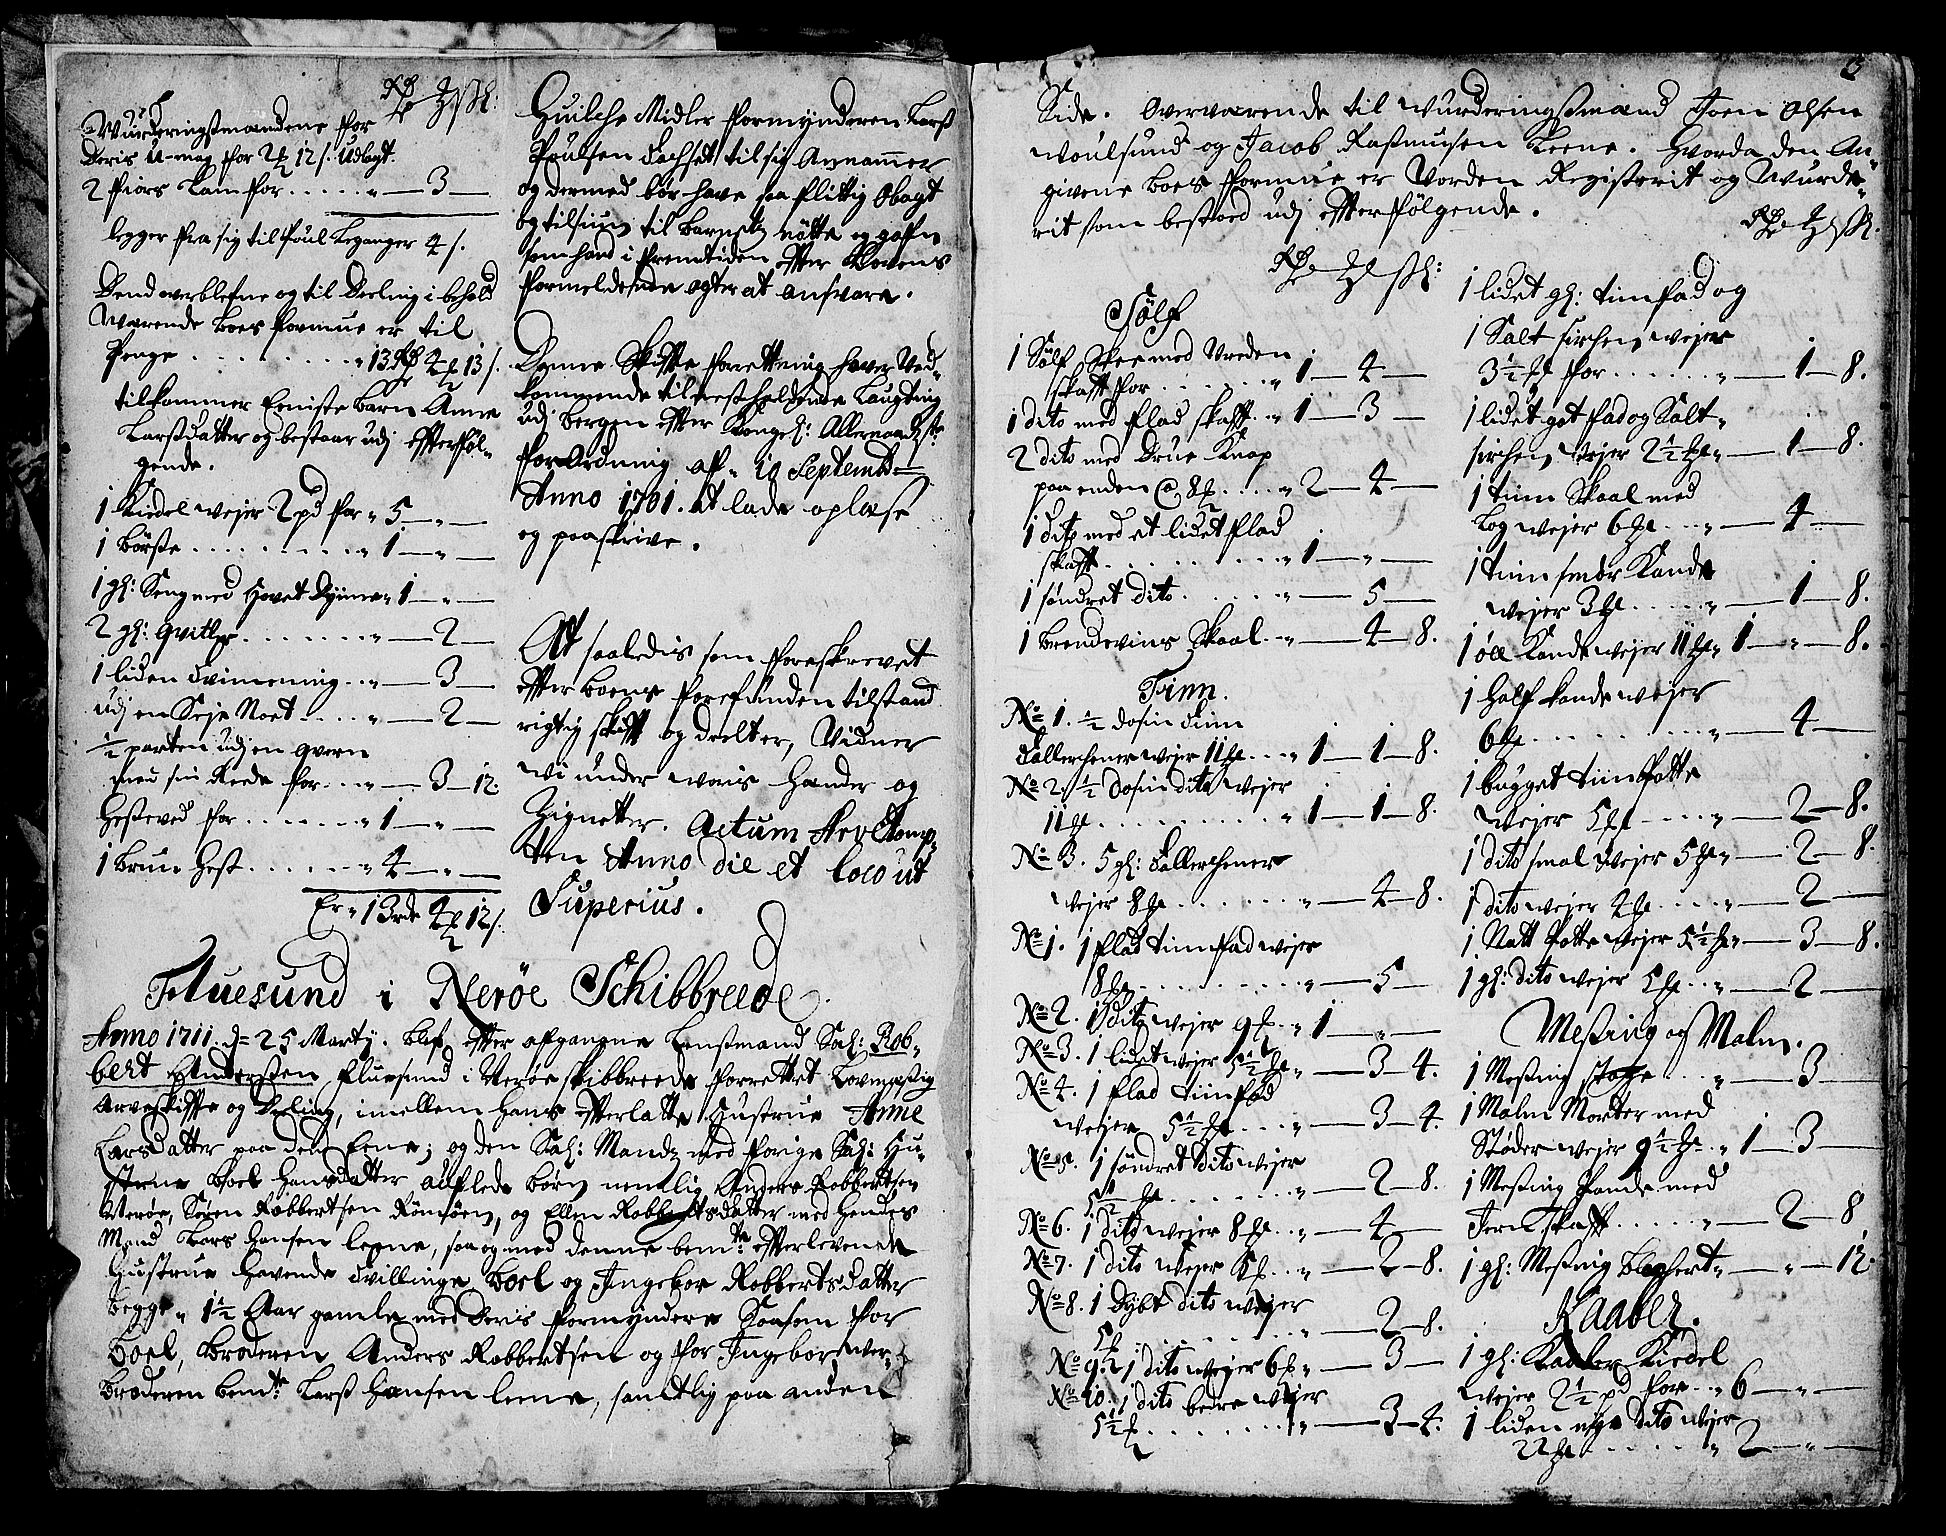 Rdr ℳ sk:
Wurderingsmændene for
deris U-mag for 2 ℳ 12 s. Udlagt
2 fiors Lam for . . . . . „ — 3 —
legger fra sig til Poul Leganger 4 s.
Dend overblefne og til Deeling i behold
Warende Boes formue er til
Penge . . . . . . . . „ 13 Rdr 4 ℳ 13 s.
tilkommer Eeniste barn Anna
Larsdatter og bestaar udj effterføl-
gende.
1 Kiedel wejer 2 pd for „ 5 — „ —
1 børse . . . . . . . . . „ 1 — „ —
1 gl: Seng med Hovet Dyinne „ 1 — „ —
2 gl: qvitler . . . . . . . „ — 2 —
1 liden qviinning . . „ — 3 —
udj en Seje Noet . . . . „ — 2 —
½ parten udj en qvern
med sin Reede for . . . „ — 3 — 12.
Hesteved for . . . . . . . „ 1 — „ —
1 Brun Hest . . . . . . „ 4 — „ —
Er „ 13 rdr 4 ℳ 12 s.
Huilche Midler formynderen Lars
Poulsen til sig Annammer
og dermed bør have saa flittig Obagt
og tilsiun til barnets nøtte og gafn
som hand i fremtiden effter Lovens
formeldende agter at ansvare.
Denne Skiffte forretning haver Ved-
kommende til næstholdende Laugting
udj Bergen effter Kongl: Allernaadste
forordning af „ 10 Septembr
Anno 1701. at lade oplæse
og paaskrive.
At saaledis som foreskrevet
effter boens forefunden tilstand
rigtig skifft og deelt er, Vidner
wi under woris Hender og
Zignetter. Actum
ten Anno die et loco ut
Superius.
Fluesund i Nerøe Schibbreede.
Anno 1711. d= 25 Marty. Blef effter afgangne Lensmand Sal: Rob-
bert Andersen Fluesund i Nerøe skibbreede forrettet Lovmæssig
Arveskiffte og Deeling, imellem Hans effterlatte Hustrue Anne
Larsdatter paa den Eene; og den Sal: Mandz med forige Sal: Hu-
strue Boel Hansdatter aufflede børn nemlig Anders Robbertsen
Nerøe, Søren Robbertsen Rømsøen, og Ellen Robbertsdatter med Hendes
Mand Lars Hansen leene, saa og med denne bemte effterlevende
Hustrue Havende tvillinge Boel og Ingebor Robbertsdatter
begge „ 1½ Aar gamle med deris formyndere Saasom for
Boel, Broderen Anders Robbertsen og for Ingebor, Swer-
broderen bemte Lars Hansen leene, samtlig paa anden
3
Side. Overværende til wurderingsmænd Joen Olsen
Woulsund og Jacob Rasmusen Leene. Hvorda den An-
givene boes formue er vorden Registerit og wurde-
rit som bestoed udj effterfølgende.
Rdr ℳ sk:
Sølf
1 Sølf Skee med Vreden
skafft for . . . . . . . „ 1 — 4 —
1 dito med flad skafft . „ 1 — 3 —
2 dito med Drue Knap
paa enden a 8 ℳ . . . . „ 2 — 4 —
1 dito med et lidet flad
skafft . . . . . . . . . . „ 1 — „ —
1 søndret dito . . . . . „ — 5 —
1 Brendevins Skaal . „ — 4 — 8.
Tinn.
No 1. ½ dosin tinn
tallerchener wejer 11 ℔ . . . „ 1 — 1 — 8.
No 2. ½ dosin dito wejer
11 ℔ . . . . . . . . . . „ 1 — 1 — 8.
No 3. 5 gl: tallerchener
wejer 8 ℔ . . . . . . . „ — 4 — 8.
No 1. 1 flad tinn fad wejer
8 ℔ . . . . . . . . . „ — 5 —
No 2. 1 dito wejer 9 ℔ . „ 1 — „ —
No 3. 1 lidet wejer 5½ ℔ „ — 3 — 4.
No 4. 1 flad tinnfad
wejer 5½ ℔ . . . „ — 3 — 4.
No 5. 1 søndret dito wejer
5½ ℔ . . . . . . . . „ — 2 — 8.
No 6. 1 dito wejer 8 ℔ . . „ — 4 —
No 7. 1 dito wejer 5 ℔ . . „ — 2 — 8.
No 8. 1 dybt dito wejer
5 ℔ . . . . . . . . . „ — 2 — 8.
No 9. 1 dito wejer 6 ℔ „ — 3 —
No 10. 1 dito bedre wejer
5½ ℔ . . . . . . . . „ — 3 — 4.
Rdr ℳ sk:
1 lidet gl: tinnfad og
1 Salt sirchen wejer
3½ ℔ for . . . . . . „ — 1 — 8.
1 lidet got fad og Salt-
sirchen wejer 2½ ℔ „ — 1 — 8.
1 tinn Skaal med
Log wejer 6 ℔ . . . „ — 4 —
1 tinn smør Kande
wejer 3 ℔ . . . . . „ — 1 — 8.
1 øll Kande wejer 11 ℔ „ 1 — „ — 8.
1 Half kande wejer
6 ℔ . . . . . . . . . . „ — 4 —
1 bugget tinn Potte
wejer 5 ℔ . . . . . „ — 2 — 8.
1 dito smal wejer 5 ℔ „ — 2 — 8.
1 dito wejer 4 ℔ . . . . „ — 2 —
1 Natt Potte wejer 5½ ℔ „ — 3 — 8.
1 gl: dito wejer 5 ℔ . . „ — 2 —
Messing og Malm.
1 Messing stage . . . „ — 3 —
1 Malm Morter med
Støder wejer 9½ ℔ . „ 1 — 3 —
1 Messing Pande med
Jern skafft . . . . . „ — 2 — 8
1 gl: Messing „ — „ — 12.
Kaaber.
1 gl: Kaaber Kiedel
wejer 2½ pd for . . „ 6 — „ —
1 liden nye dito wejer
22 ℔ . . . . . . . . „ 2 — „ —